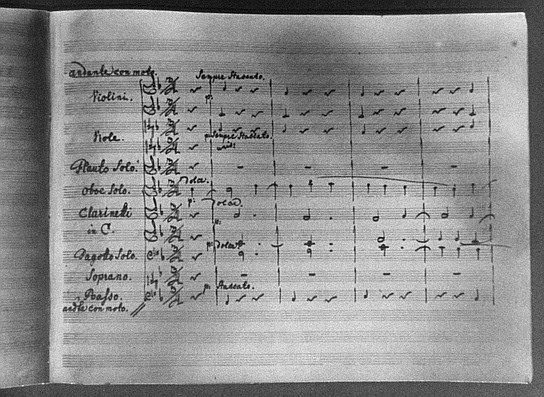 andante con moto.
Sempre Staccato.
Violini.
p:
Viole.
p: Sempre Staccato
Flauto Solo.
Oboe Solo.
Dolce.
Clarinetti
p: Dolce.
in C.
p:
Fagotto Solo.
p: Dolce
Soprano.
p: Staccato.
Basso.
andte con moto.